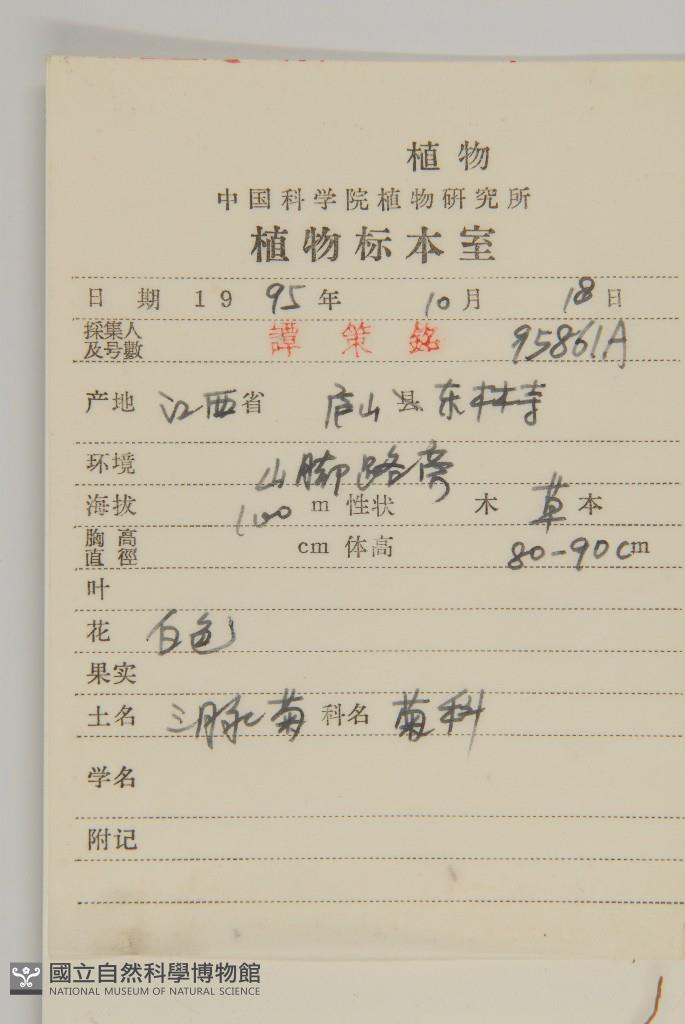 植物
中国科学院植物研究所
植物标本室
日期 1995年 10月 18日
採集人及号數 譚策銘 95861A
产地 江西省 庐山县 东林寺
环境 山脚路旁
海拔 100 m 性状 木 草本
胸高直徑 cm 体高 80-90cm
叶
花 白色
果实
土名 三脉菊 科名 菊科
学名
附记
國立自然科學博物館
NATIONAL MUSEUM OF NATURAL SCIENCE